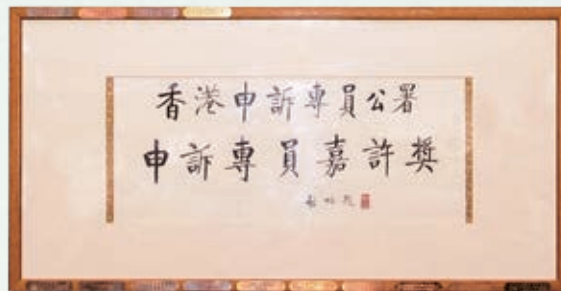 香港申訴專員公署
申訴專員嘉許獎